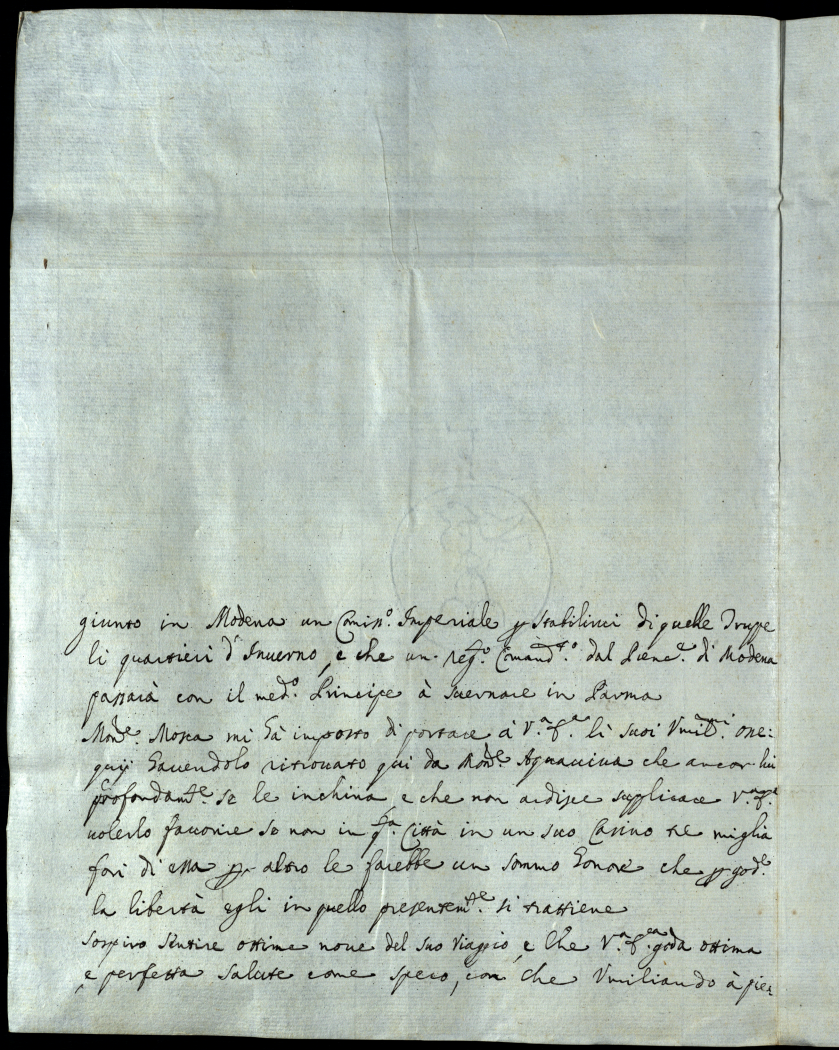 giunto in Modena un Comiss.º Imperiale p Stabilirci di quelle Truppe
li quartieri d'Inuerno, e che un reg.º Comand.º dal Prenc.e di Modena
passarà con il med.º Principe à Suernare in Parma
Mon.re Mosca mi hà imposto di portare à V.a E.a li suoi Vmil.mi osse:
quij hauendolo ritrouato qui da Mon.re Aquauiua che ancor lui
profondam.te se le inchina e che non ardisce supplicare V.a E.a
uolerlo fauorire se non in q.ta Città in un suo Casino tre miglia
fori di essa p altro le sarebbe un sommo honore che p god.e
la libertà egli in quello presentem.te si trattiene
Sospiro sentire ottime noue del suo Viaggio, e che V.a E.a goda ottima
e perfetta salute come spero, con che Vmiliando à pie: